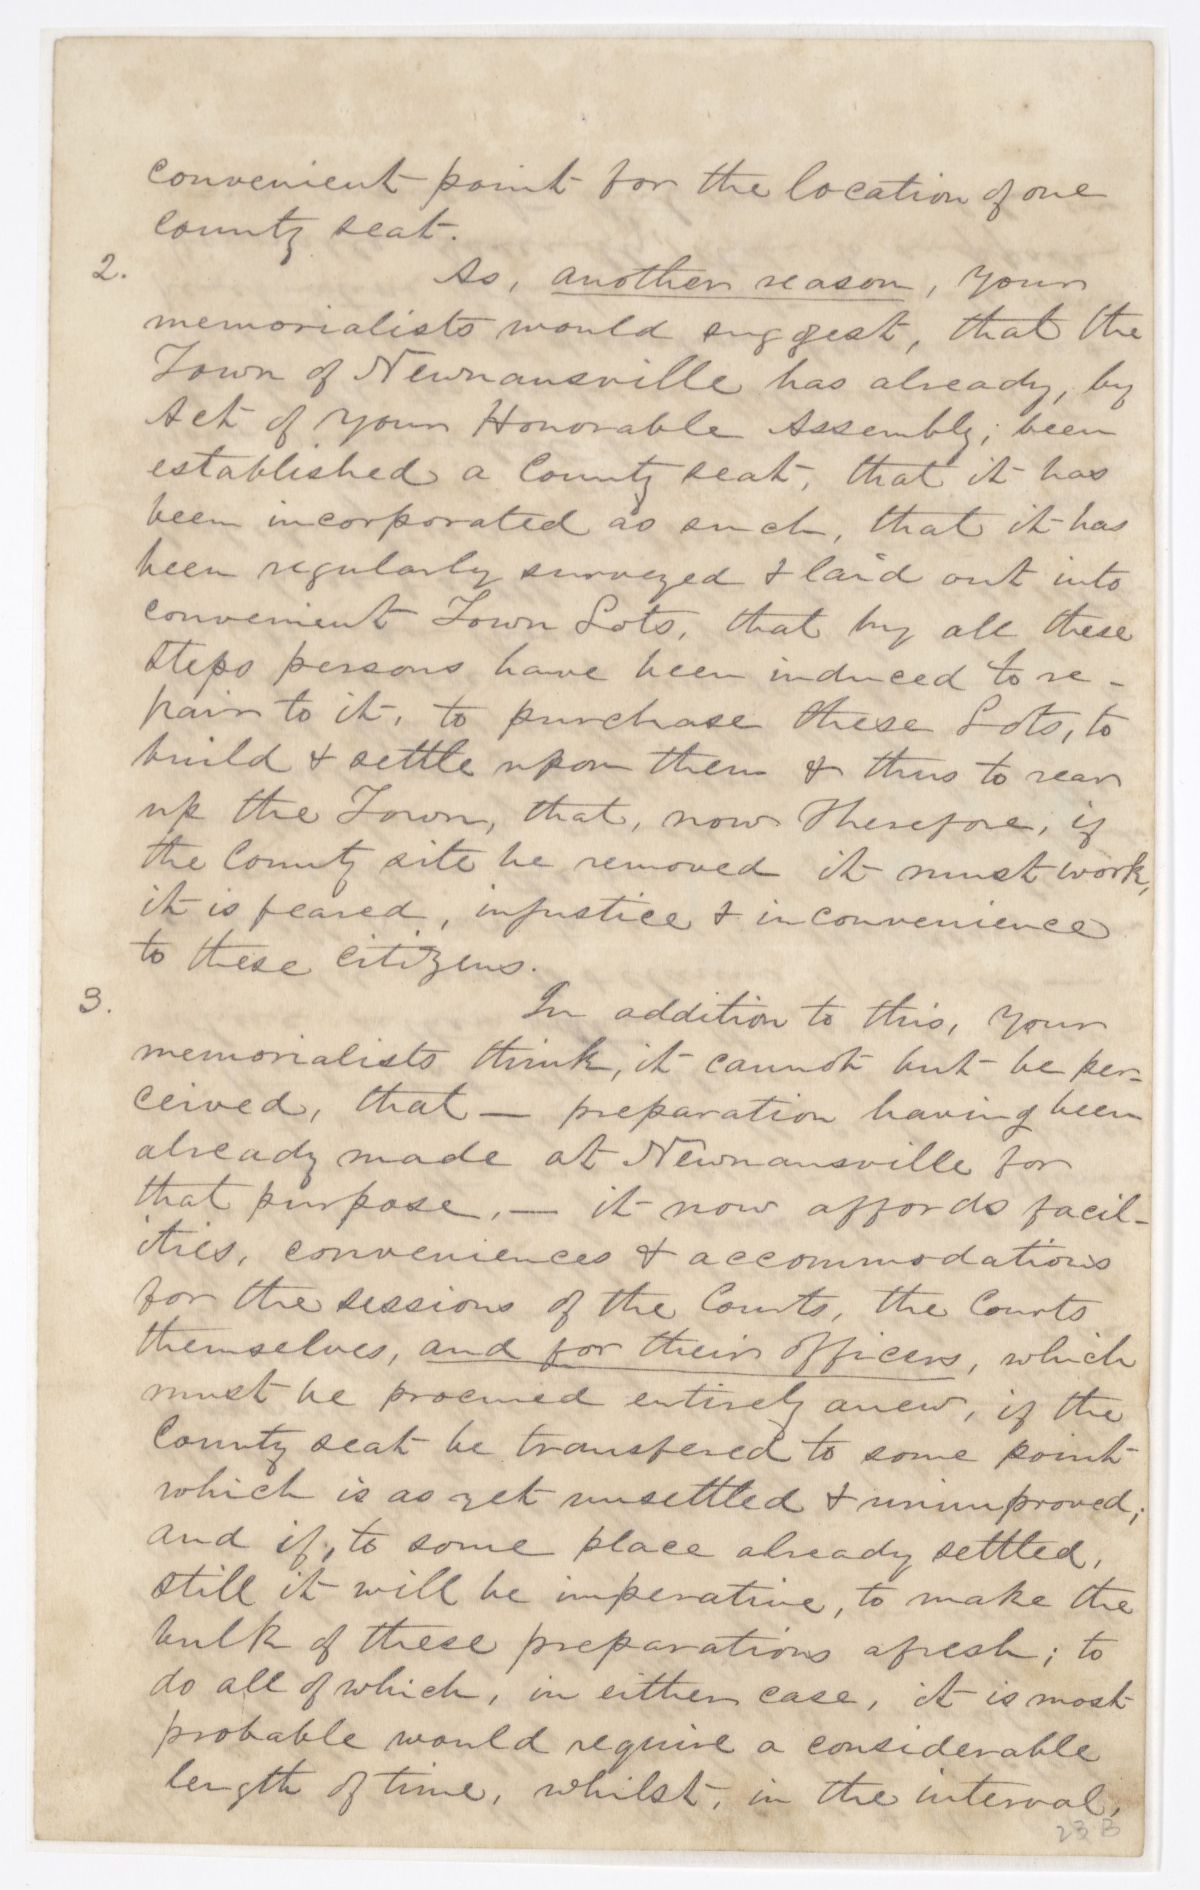 convenient point for the location of one
County seat.
2.
As, another reason, your
memorialists would suggest, that the
Town of Newnansville has already, by
Act of your Honorable Assembly; been
established a County seat, that it has
been incorporated as such, that it has
been regularly surveyed & laid out into
convenient Town Lots, that by all these
steps persons have been induced to re-
pair to it, to purchase these Lots, to
build & settle upon them & thus to rear
up the Town, that, now therefore, if
the County site be removed it must work,
it is feared, injustice & inconvenience
to these citizens.
3.
In addition to this, your
memorialists think, it cannot but be per-
ceived, that — preparation having been
already made at Newnansville for
that purpose, — it now affords facil-
ities, conveniences & accommodations
for the sessions of the Courts, the Courts
themselves, and for their officers, which
must be procured entirely anew, if the
County seat be transfered to some point
which is as yet unsettled & unimproved;
and if, to some place already settled,
still it will be imperative, to make the
bulk of these preparations afresh; to
do all of which, in either case, it is most
probable would require a considerable
length of time, whilst, in the interval,
23 B